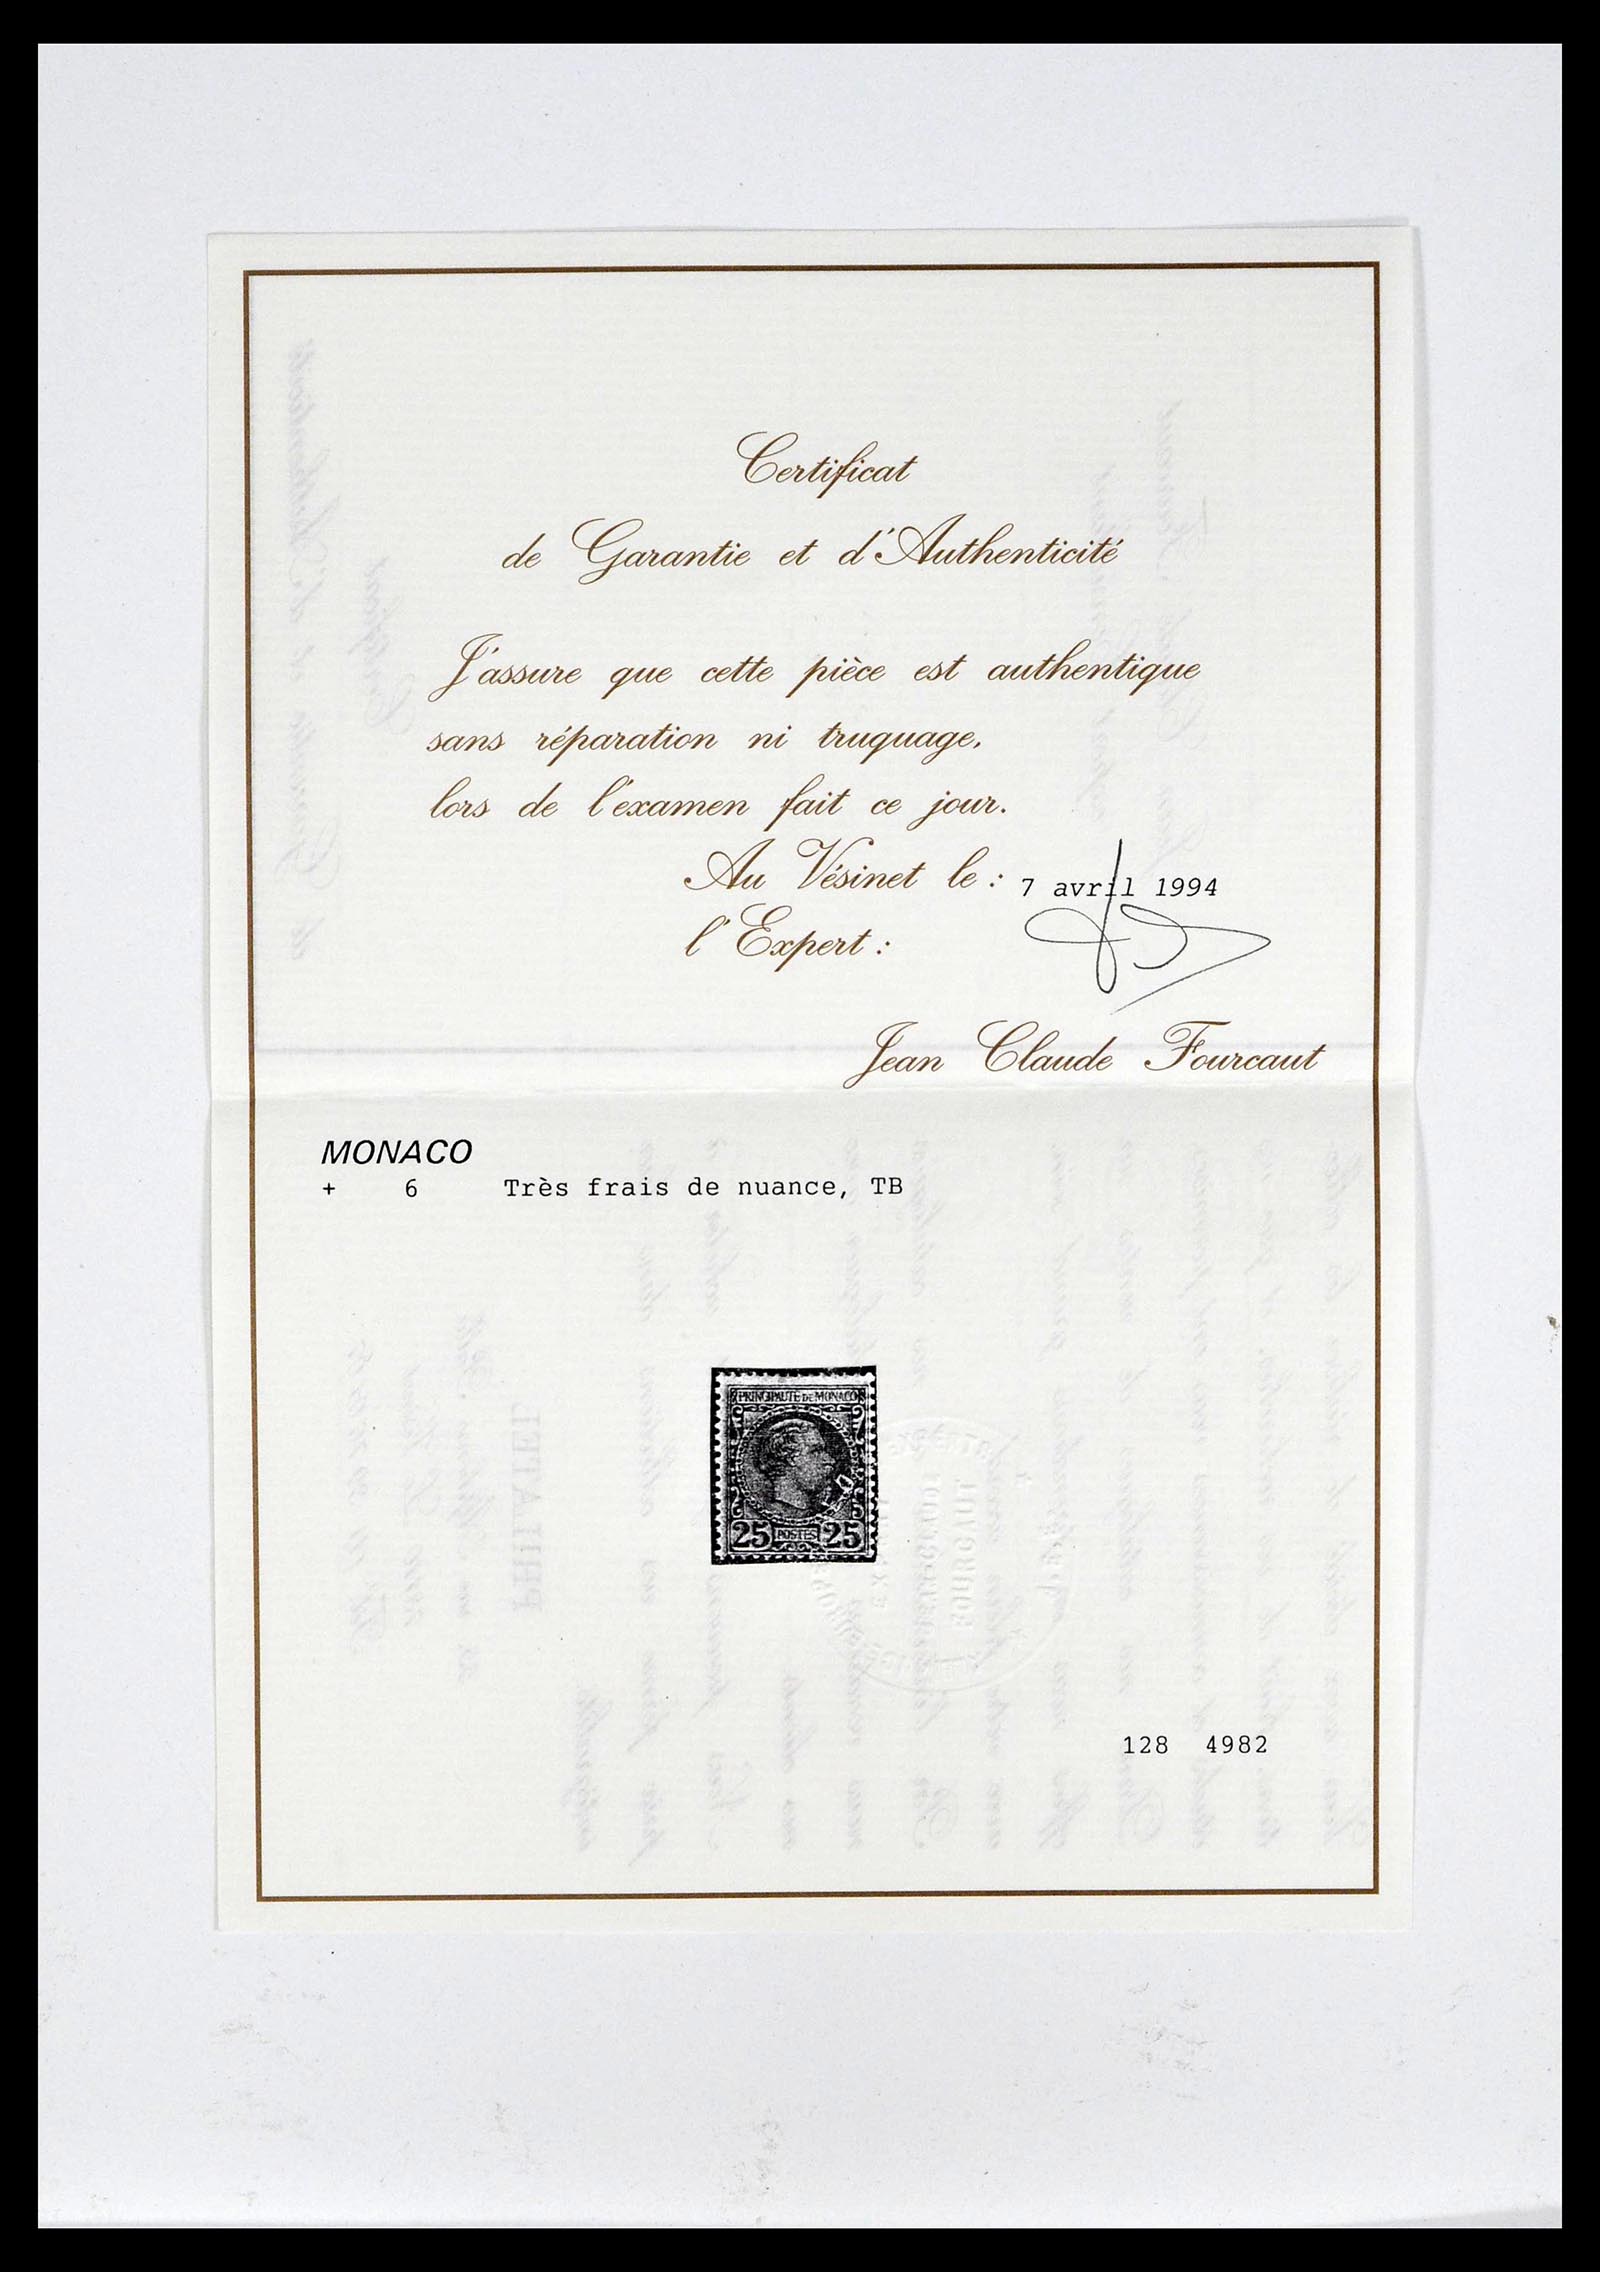 Certificat
de Garantie et d'Authenticité
J'assure que cette pièce est authentique
sans réparation ni truquage,
lors de l'examen fait ce jour.
Au Vésinet le : 7 avril 1994
l'Expert :
Jean Claude Fourcaut
MONACO
+ 6 Très frais de nuance, TB
PRINCIPAUTE DE MONACO
25 POSTES 25
128 4982